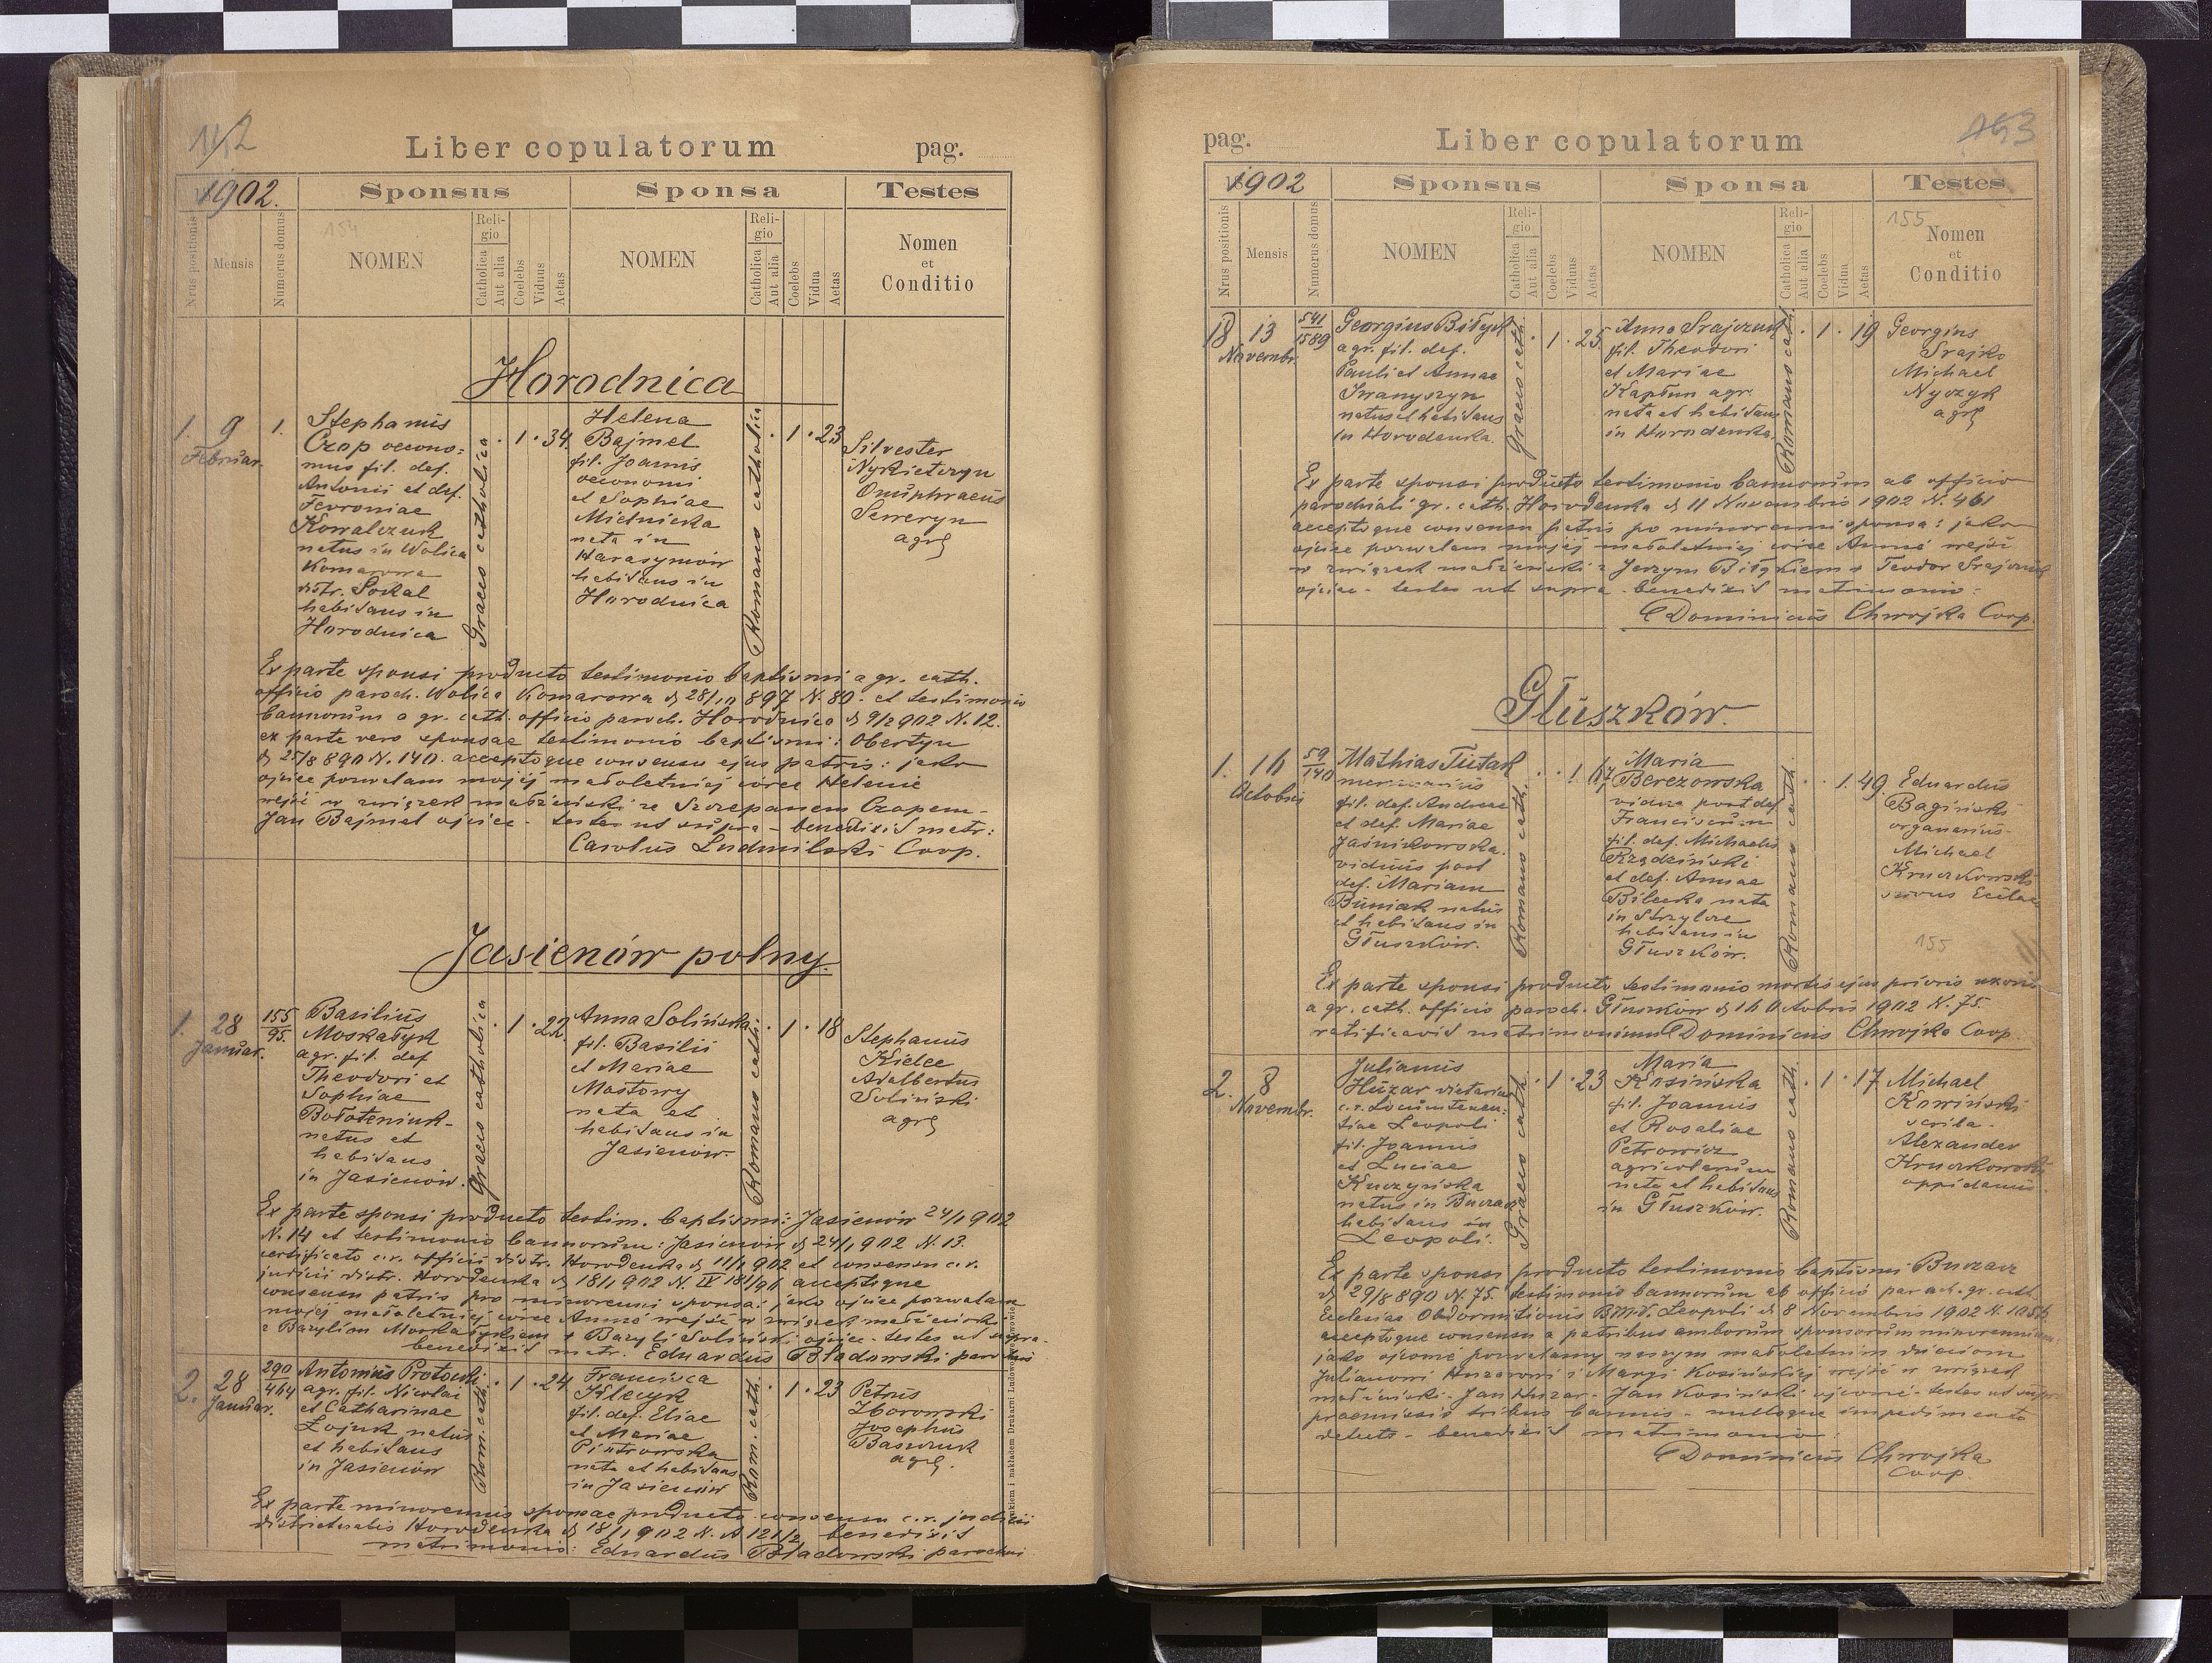 152
Liber copulatorum pag.
1902. Sponsus Sponsa Testes
Nrus positionis Mensis Numerus domus NOMEN Religio Catholica Aut alia Coelebs Viduus Aetas NOMEN Religio Catholica Aut alia Coelebs Vidua Aetas Nomen et Conditio
154
Horodnica
1. 9 Februar. 1.
Stephanus
Czap oecono:
mus fil. def.
Antonii et def.
Fevroniae
Kowalczuk
natus in Wolica
Komarowa
distr. Sokal
habitans in
Horodnica
Graeco catholica
1 34
Helena
Bajmel
fil. Joannis
oeconomi
et Sophiae
Mielnicka
nata in
Harasymów
habitans in
Horodnica
Romano catholica
1 23
Silvester
Nykietczyn
Onuphraeus
Seweryn
agr.
Ex parte sponsi producto testimonio baptismi a gr. cath.
officio paroch. Wolica Komarowa d 28/11 897 N. 80. et testimonio
bannorum a gr. cath. officio paroch. Horodnica d 9/2 902 N. 12.
ex parte vero sponsae testimonio baptismi: Obertyn
d 25/8 890 N. 140. acceptoque consensu ejus patris: jako
ojciec pozwalam mojej małoletniej córce Helenie
wejść w związek małżeński ze Szczepanem Czapem –
Jan Bajmel ojciec – testes ut supra – benedixit matr:
Carolus Ludmilski Coop.
Jasienów polny.
1. 28 Januar. 155/95
Basilius
Moskałyk
agr. fil. def
Theodori et
Sophiae
Bołoteniuk –
natus et
habitans
in Jasienów.
Graeco catholica
1 22
Anna Solińska
fil. Basilii
et Mariae
Mostowy
nata et
habitans in
Jasienów.
Romano cathol.
1 18
Stephanus
Kielec
Adalbertus
Soliński
agr.
Ex parte sponsi producto testim. baptismi: Jasienów 24/1 902
N. 14 et testimonio bannorum: Jasienów d 24/1 902 N. 13.
certificato c.r. officii distr. Horodenka d 11/1 902 et consensu c.r.
judicii distr. Horodenka d 18/1 902 N. IV acceptoque
consensu patris pro minorenni sponsa: jako ojciec pozwalam
mojej małoletniej córce Annie wejść w związek małżeński
z Bazylim Moskałykiem + Bazyli Soliński ojciec – testes ut supra –
benedixit matr. Eduardus Bładowski parochus
2. 28 Januar. 290/464
Antonius Protocki
agr. fil. Nicolai
et Catharinae
Łojuk natus
et habitans
in Jasienów
Rom. cath.
1 24
Francisca
Klecyk
fil. def. Eliae
et Mariae
Piotrowska
nata et habitans
in Jasienów
Rom. cath.
1 23
Petrus
Zborowski
Josephus
Baszczuk
agr.
Ex parte minorennis sponsae producto consensu c.r. judicii
districtualis Horodenka d 18/1 902 N. A 121/2 benedixit
matrimonio: Eduardus Bładowski parochus
pag. Liber copulatorum 153
1902 Sponsus Sponsa Testes
Nrus positionis Mensis Numerus domus NOMEN Religio Catholica Aut alia Coelebs Viduus Aetas NOMEN Religio Catholica Aut alia Coelebs Vidua Aetas Nomen et Conditio
155
18 13 Novembr. 541/1589
Georgius Biłyk
agr. fil. def.
Pauli et Annae
Iwanyszyn
natus et habitans
in Horodenka.
Graeco cath.
1 25
Anna Srajczuk
fil. Theodori
et Mariae
Kapłun agr.
nata et habitans
in Horodenka
Romano cath.
1 19
Georgius
Srajko
Michael
Nyczyk
agr.
Ex parte sponsi producto testimonio bannorum ab officio
parochiali gr. cath. Horodenka d 11 Novembris 1902 N. 461
acceptoque consensu patris po minorenni sponsa: jako
ojciec pozwalam mojej małoletniej córce Annie wejść
w związek małżeński z Jerzym Biłykiem + Teodor Srajczuk
ojciec – testes ut supra – benedixit matrimonio:
Dominicus Chwojka Coop.
Głuszków.
1. 16 Octobris 59/140
Mathias Tutak
mercenarius
fil. def. Andreae
et def. Mariae
Jaśnikowska.
viduus post
def. Mariam
Buniak natus
et habitans in
Głuszków.
Romano cath.
1 67
Maria
Berezowska
vidua post def
Franciscum
fil. def. Michaelis
Rządziński
et def. Annae
Bilecka nata
in Strzylcze
habitans in
Głuszków.
Romano cath.
1. 49.
Eduardus
Bagiński
organarius –
Michael
Kruczkowski
servus Ecclae
155
Ex parte sponsi producto testimonio mortis ejus prioris uxoris
a gr. cath. officio paroch. Głuszków d 16 Octobris 1902 N. 75.
ratificavit matrimonium Dominicus Chwojka Coop.
2. 8 Novembr.
Julianus
Huzar dietarius
c.r. Locumtenen:
tiae Leopoli
fil. Joannis
et Luciae
Kuczyńska
natus in Buczacz
habitans in
Leopoli.
Graeco cath.
1 23
Maria
Kosińska
fil. Joannis
et Rosaliae
Petrowicz
agricolarum
nata et habitans
in Głuszków.
Romano cath.
1 17
Michael
Kowiński
scriba –
Alexander
Kruczkowski
oppidanus.
Ex parte sponsi producto testimonio baptismi Buczacz
d 29/8 890 N. 75. testimonio bannorum ab officio paroch. gr. cath.
Ecclesiae Obdormitionis B.M.V. Leopoli d 8 Novembris 1902 N.
acceptoque consensu a patribus amborum sponsorum minorennium
jako ojcowie pozwalamy naszym małoletnim dzieciom
Julianowi Huzarowi i Maryi Kosińskiej wejść w związek
małżeński – Jan Huzar – Jan Kosiński ojcowie – testes ut supra
praemissis tribus bannis – nulloque impedimento
detecto – benedixit matrimonio:
Dominicus Chwojka
Coop.